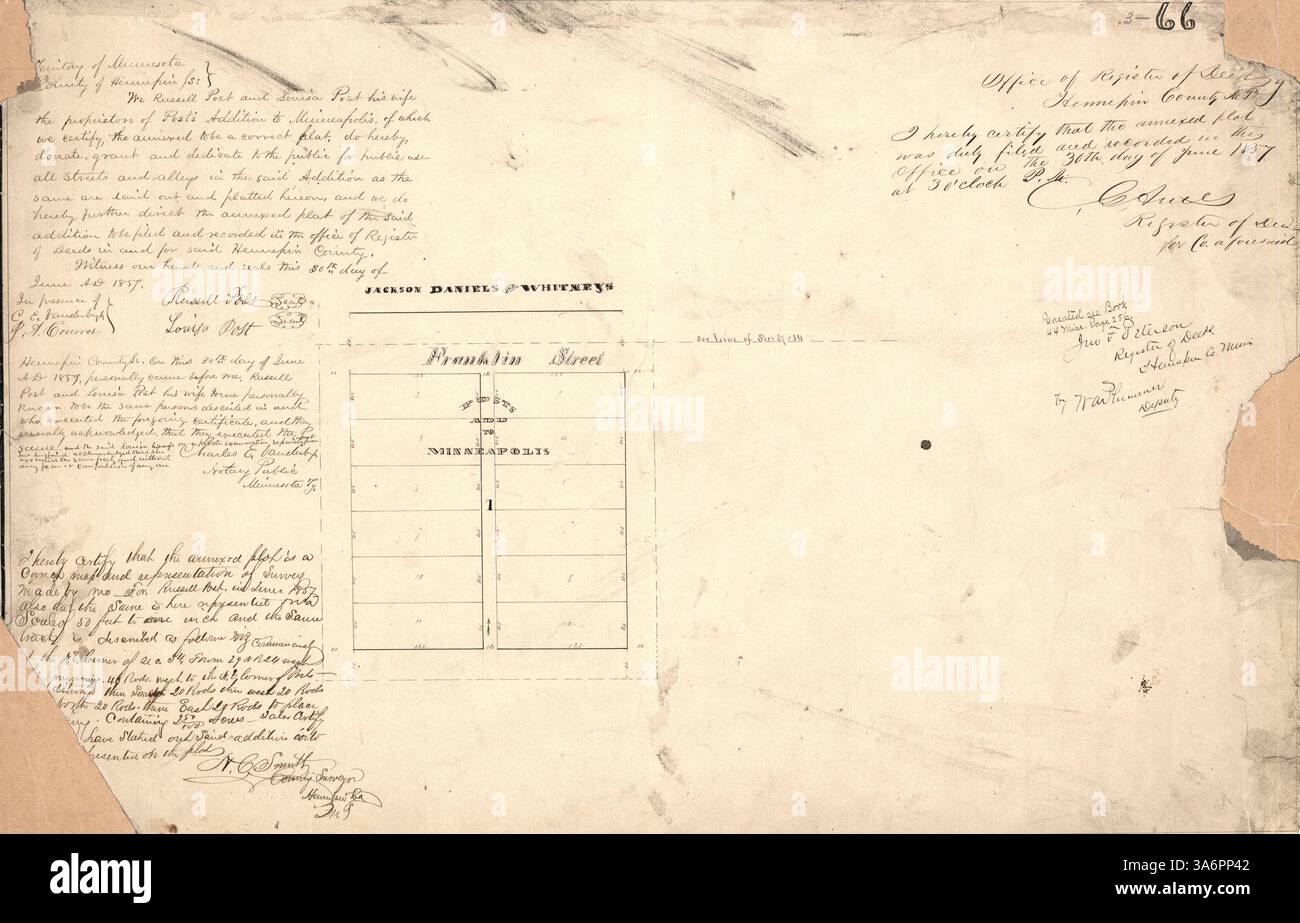 3-66
Territory of Minnesota
County of Hennepin } ss:
We Russell Post and Louisa Post his wife
the proprietors of Post's Addition to Minneapolis, of which
we certify the annexed to be a correct plat, do hereby
donate, grant and dedicate to the public for public use
all streets and alleys in the said Addition as the
same are laid out and platted hereon, and we do
hereby further direct the annexed plat of the said
addition to be filed and recorded in the office of Register
of Deeds in and for said Hennepin County.
Witness our hands and seals this 30th day of
June A.D. 1857.
In presence of
C. E. Vanderburgh
Russell Post Seal
Louisa Post Seal
Hennepin County Ss. On this 30th day of June
A.D. 1857, personally came before me, Russell
Post and Louisa Post his wife to me personally
known to be the same persons described in and
who executed the foregoing certificate, and they
acknowledged that they executed the
same and the said Louisa
Charles E. Vanderburgh
Notary Public
Minnesota Ty.
I hereby certify that the annexed plat is a
Correct map and representation of Survey
made by me For Russell Post in June 1857
also that the Same is here represented on a
Scale of 50 feet to one inch and the Same
tract is described as follows viz Commencing
the N.E. Corner of Sec. 34 Town 29 N R 24 west
running 40 Rods west to the N.E. Corner of Posts
addition, then South 20 Rods then west 20 Rods
North 20 Rods then East 20 Rods to place
Containing 2 50/100 Acres I also Certify
have Staked out Said addition as
presented on the plat
N. C. Smith
County Surveyor
Henn Co
M T
Office of Register of Deeds
Hennepin County M.T.
I hereby certify that the annexed plat
was duly filed and recorded in this
Office on the 30th day of June 1857
at 3 o'clock P.M.
Register of Deeds
for Co. aforesaid
Vacated see Book
44 Misc. Page 256
Jno F Peterson
Register of Deeds
Hennepin Co Minn
by W A Plummer
Deputy
JACKSON DANIELS AND WHITNEYS
Sec Line of Secs 27 & 34
Franklin Street
POSTS
ADD
TO
MINNEAPOLIS
1
10
11
12
alamy
Image ID: 3A6PP42
www.alamy.com